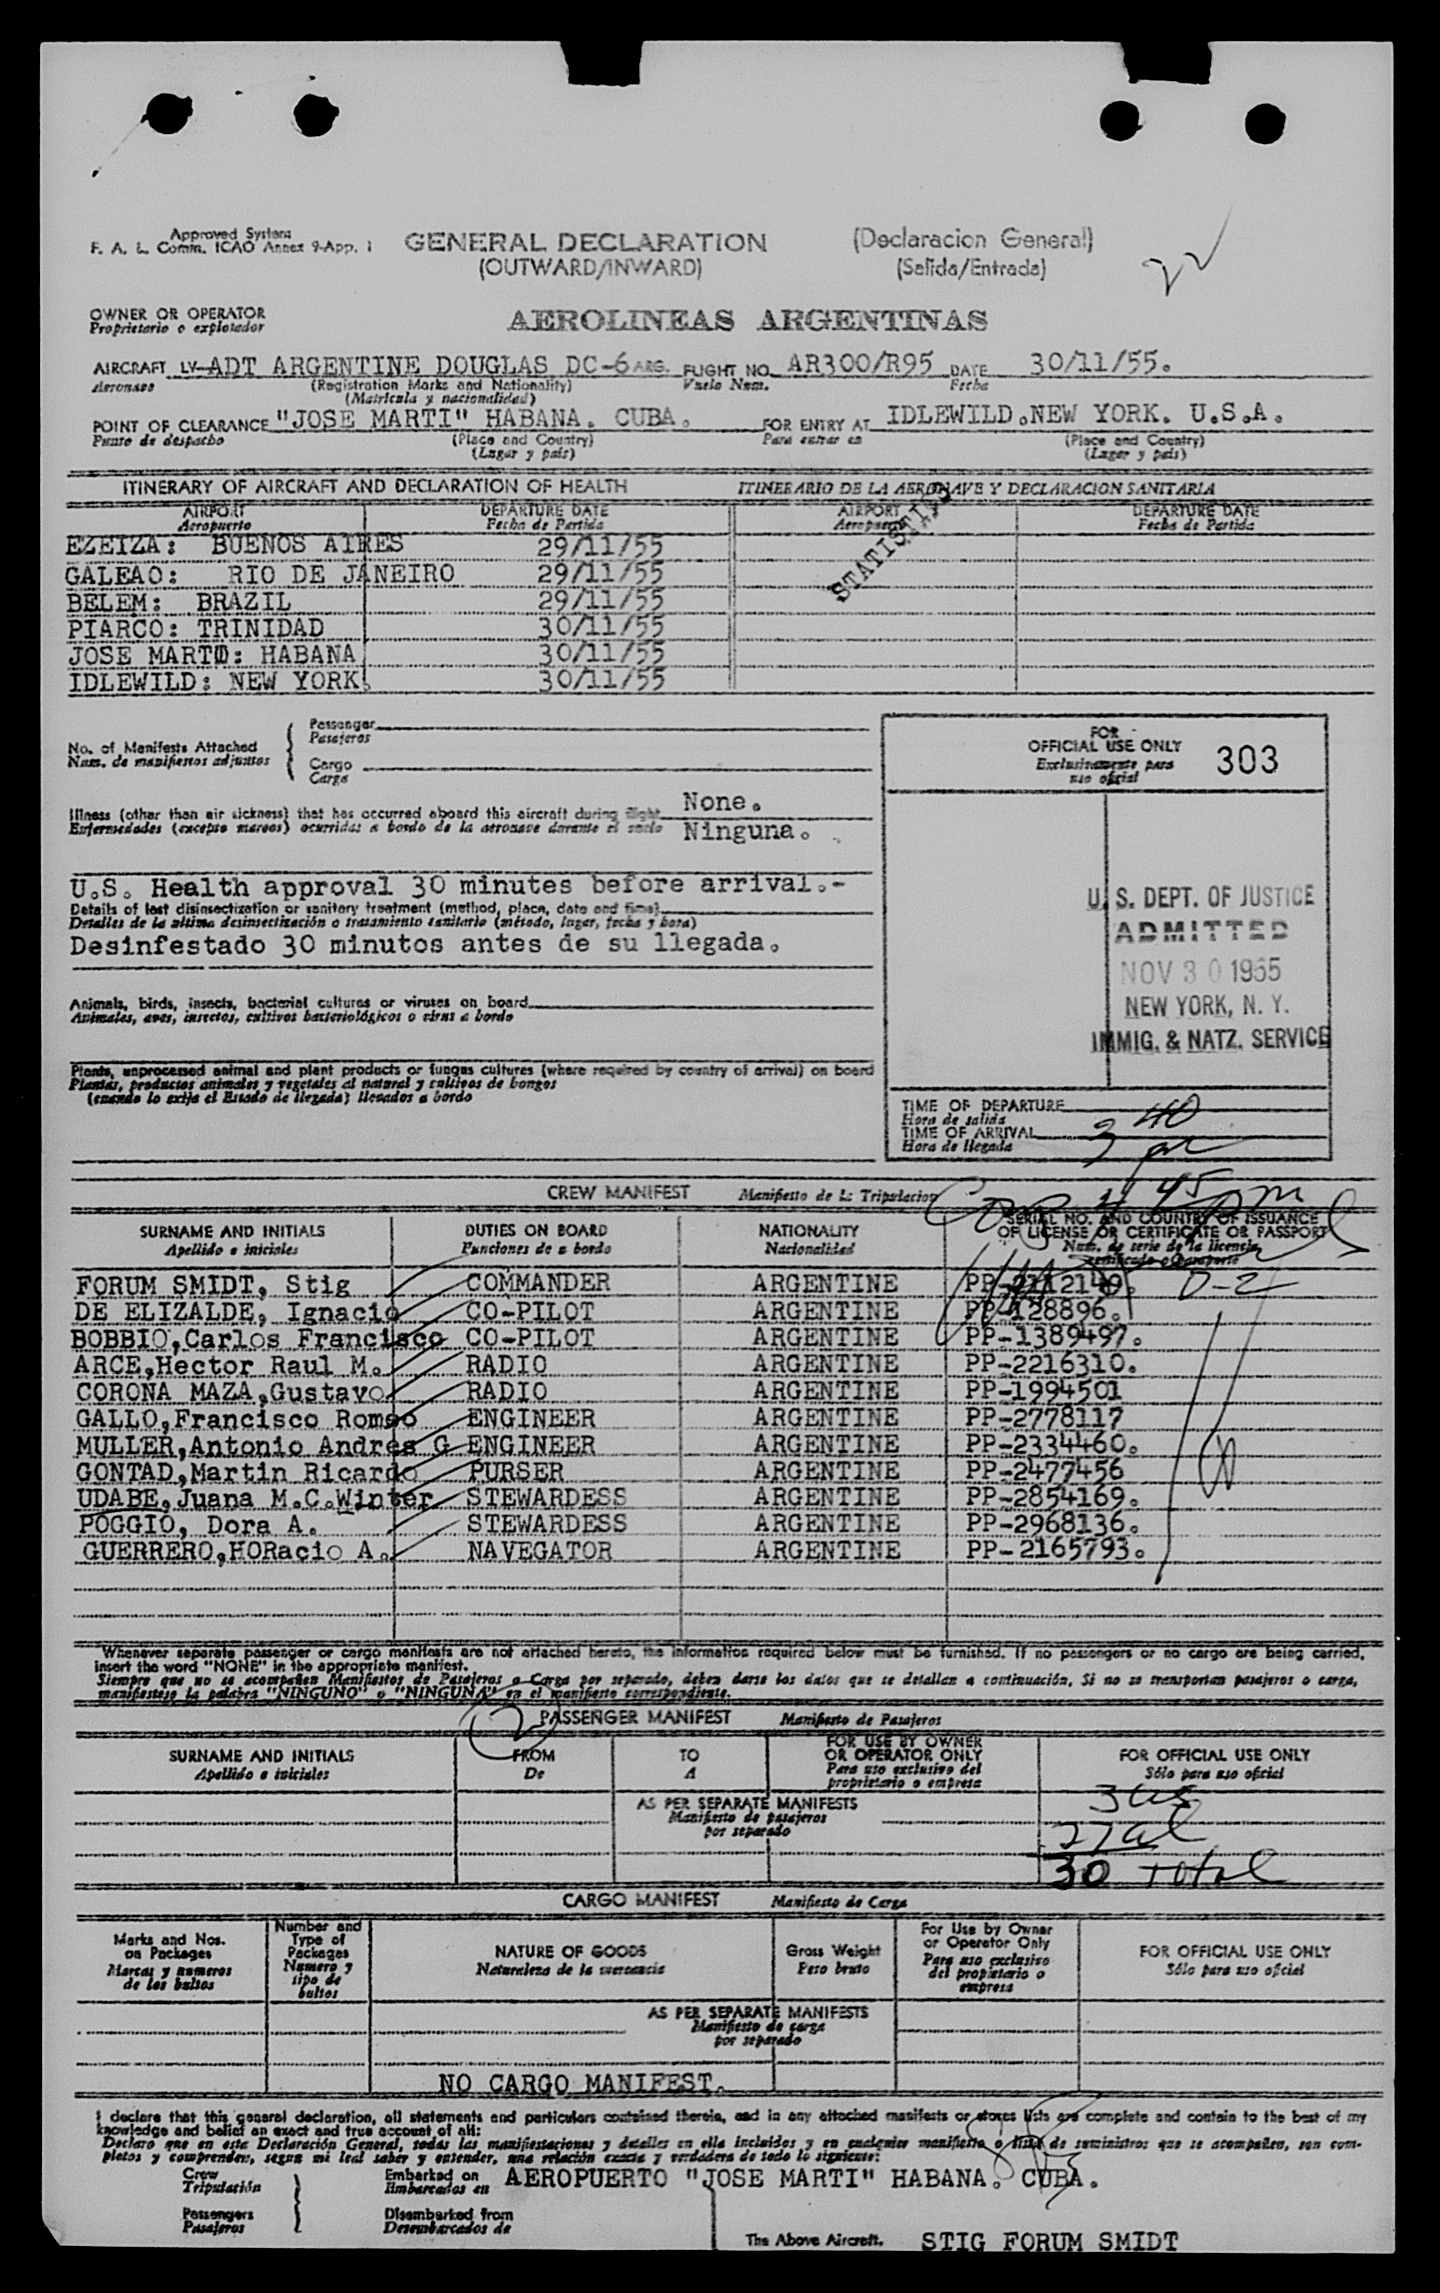 Approved System
F. A. L. Comm. ICAO Annex 9-App. 1
GENERAL DECLARATION (Declaracion General)
(OUTWARD/INWARD) (Salida/Entrada)
22
OWNER OR OPERATOR
Proprietario o explotador
AEROLINEAS ARGENTINAS
AIRCRAFT LV-ADT ARGENTINE DOUGLAS DC-6 ARG. FLIGHT NO. AR300/R95 DATE 30/11/55.
Aeronave (Registration Marks and Nationality) Vuelo Num. Fecha
(Matricula y nacionalidad)
POINT OF CLEARANCE "JOSE MARTI" HABANA. CUBA. FOR ENTRY AT IDLEWILD.NEW YORK. U.S.A.
Punto de despacho (Place and Country) Para entrar en (Place and Country)
(Lugar y pais) (Lugar y pais)
ITINERARY OF AIRCRAFT AND DECLARATION OF HEALTH ITINERARIO DE LA AERONAVE Y DECLARACION SANITARIA
AIRPORT DEPARTURE DATE AIRPORT DEPARTURE DATE
Aeropuerto Fecha de Partida Aeropuerto Fecha de Partida
STATISTICS
EZEIZA: BUENOS AIRES 29/11/55
GALEAO: RIO DE JANEIRO 29/11/55
BELEM: BRAZIL 29/11/55
PIARCO: TRINIDAD 30/11/55
JOSE MARTI: HABANA 30/11/55
IDLEWILD: NEW YORK. 30/11/55
No. of Manifests Attached
Num. de manifiestos adjuntos
Passenger
Pasajeros
Cargo
Carga
FOR
OFFICIAL USE ONLY 303
Exclusivamente para
uso oficial
Illness (other than air sickness) that has occurred aboard this aircraft during flight None.
Enfermedades (excepto mareos) ocurridas a bordo de la aeronave durante el vuelo Ninguna.
U.S. Health approval 30 minutes before arrival.-
Details of last disinsectization or sanitary treatment (method, place, date and time)
Detalles de la ultima desinsectización o tratamiento sanitario (método, lugar, fecha y hora)
Desinfestado 30 minutos antes de su llegada.
U. S. DEPT. OF JUSTICE
ADMITTED
NOV 30 1955
NEW YORK, N. Y.
IMMIG. & NATZ. SERVICE
Animals, birds, insects, bacterial cultures or viruses on board
Animales, aves, insectos, cultivos bacteriológicos o virus a bordo
Plants, unprocessed animal and plant products or fungus cultures (where required by country of arrival) on board
Plantas, productos animales y vegetales al natural y cultivos de hongos
(cuando lo exija el Estado de llegada) llevados a bordo
TIME OF DEPARTURE
Hora de salida
TIME OF ARRIVAL 3 40
Hora de llegada pm
CREW MANIFEST Manifiesto de la Tripulacion
4 45 pm
SURNAME AND INITIALS DUTIES ON BOARD NATIONALITY SERIAL NO. AND COUNTRY OF ISSUANCE
Apellido e iniciales Funciones de a bordo Nacionalidad OF LICENSE OR CERTIFICATE OR PASSPORT
Num. de serie de la licencia,
certificado o Pasaporte
FORUM SMIDT, Stig COMMANDER ARGENTINE PP-2112149. D-2
DE ELIZALDE, Ignacio CO-PILOT ARGENTINE PP-128896.
BOBBIO,Carlos Francisco CO-PILOT ARGENTINE PP-1389497.
ARCE,Hector Raul M. RADIO ARGENTINE PP-2216310.
CORONA MAZA,Gustavo RADIO ARGENTINE PP-1994501
GALLO,Francisco Romeo ENGINEER ARGENTINE PP-2778117
MULLER,Antonio Andres G ENGINEER ARGENTINE PP-2334460.
GONTAD,Martin Ricardo PURSER ARGENTINE PP-2477456
UDABE,Juana M.C.Winter STEWARDESS ARGENTINE PP-2854169.
POGGIO, Dora A. STEWARDESS ARGENTINE PP-2968136.
GUERRERO,HORacio A. NAVEGATOR ARGENTINE PP-2165793.
Whenever separate passenger or cargo manifests are not attached hereto, the information required below must be furnished. If no passengers or no cargo are being carried,
insert the word "NONE" in the appropriate manifest.
Siempre que no se acompañen Manifiestos de Pasajeros o Carga por separado, deben darse los datos que se detallan a continuación. Si no se transportan pasajeros o carga,
manifiestese la palabra "NINGUNO" o "NINGUNA" en el manifiesto correspondiente.
2 PASSENGER MANIFEST Manifiesto de Pasajeros
SURNAME AND INITIALS FROM TO FOR USE BY OWNER OR OPERATOR ONLY FOR OFFICIAL USE ONLY
Apellido e iniciales De A Para uso exclusivo del propietario o empresa Sólo para uso oficial
AS PER SEPARATE MANIFESTS
Manifiesto de pasajeros
por separado
3 us
27 al
30 Total
CARGO MANIFEST Manifiesto de Carga
Marks and Nos. on Packages Number and Type of Packages NATURE OF GOODS Gross Weight For Use by Owner or Operator Only FOR OFFICIAL USE ONLY
Marcas y numeros de los bultos Numero y tipo de bultos Naturaleza de la mercancia Peso bruto Para uso exclusivo del propietario o empresa Sólo para uso oficial
AS PER SEPARATE MANIFESTS
Manifiesto de carga
por separado
NO CARGO MANIFEST.
I declare that this general declaration, all statements and particulars contained therein, and in any attached manifests or stores lists are complete and contain to the best of my
knowledge and belief an exact and true account of all:
Declaro que en esta Declaración General, todas las manifiestaciones y detalles en ella incluidos y en cualquier manifiesto o lista de suministros que se acompañen, son com-
pletos y comprenden, segun mi leal saber y entender, una relación exacta y verdadera de todo lo siguiente:
Crew Embarked on AEROPUERTO "JOSE MARTI" HABANA. CUBA.
Tripulación Embarcados en
Passengers Disembarked from
Pasajeros Desembarcados de
The Above Aircraft. STIG FORUM SMIDT